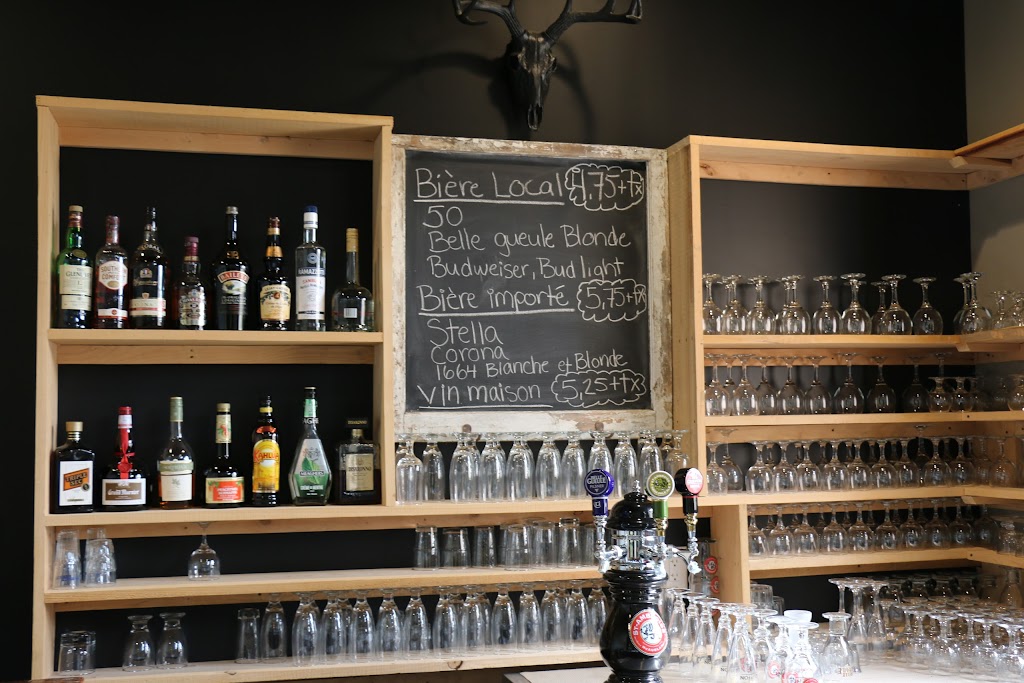 Bière Local 4,75+tx
50
Belle gueule Blonde
Budweiser, Bud light
Bière importé 5,75+tx
Stella
Corona
1664 Blanche et Blonde
Vin maison 5,25+tx
SOUTHERN
BAILEYS
RAMAZZOTTI
KAHLÚA